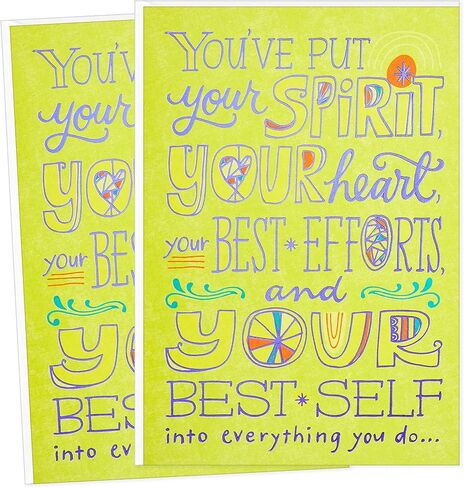 YOU'VE PUT
your SPIRIT,
YOUR heart,
your BEST EFFORTS,
and
YOUR
BEST SELF
into everything you do...
YOU'VE
your
YO
your BES
YO
BES
into ev